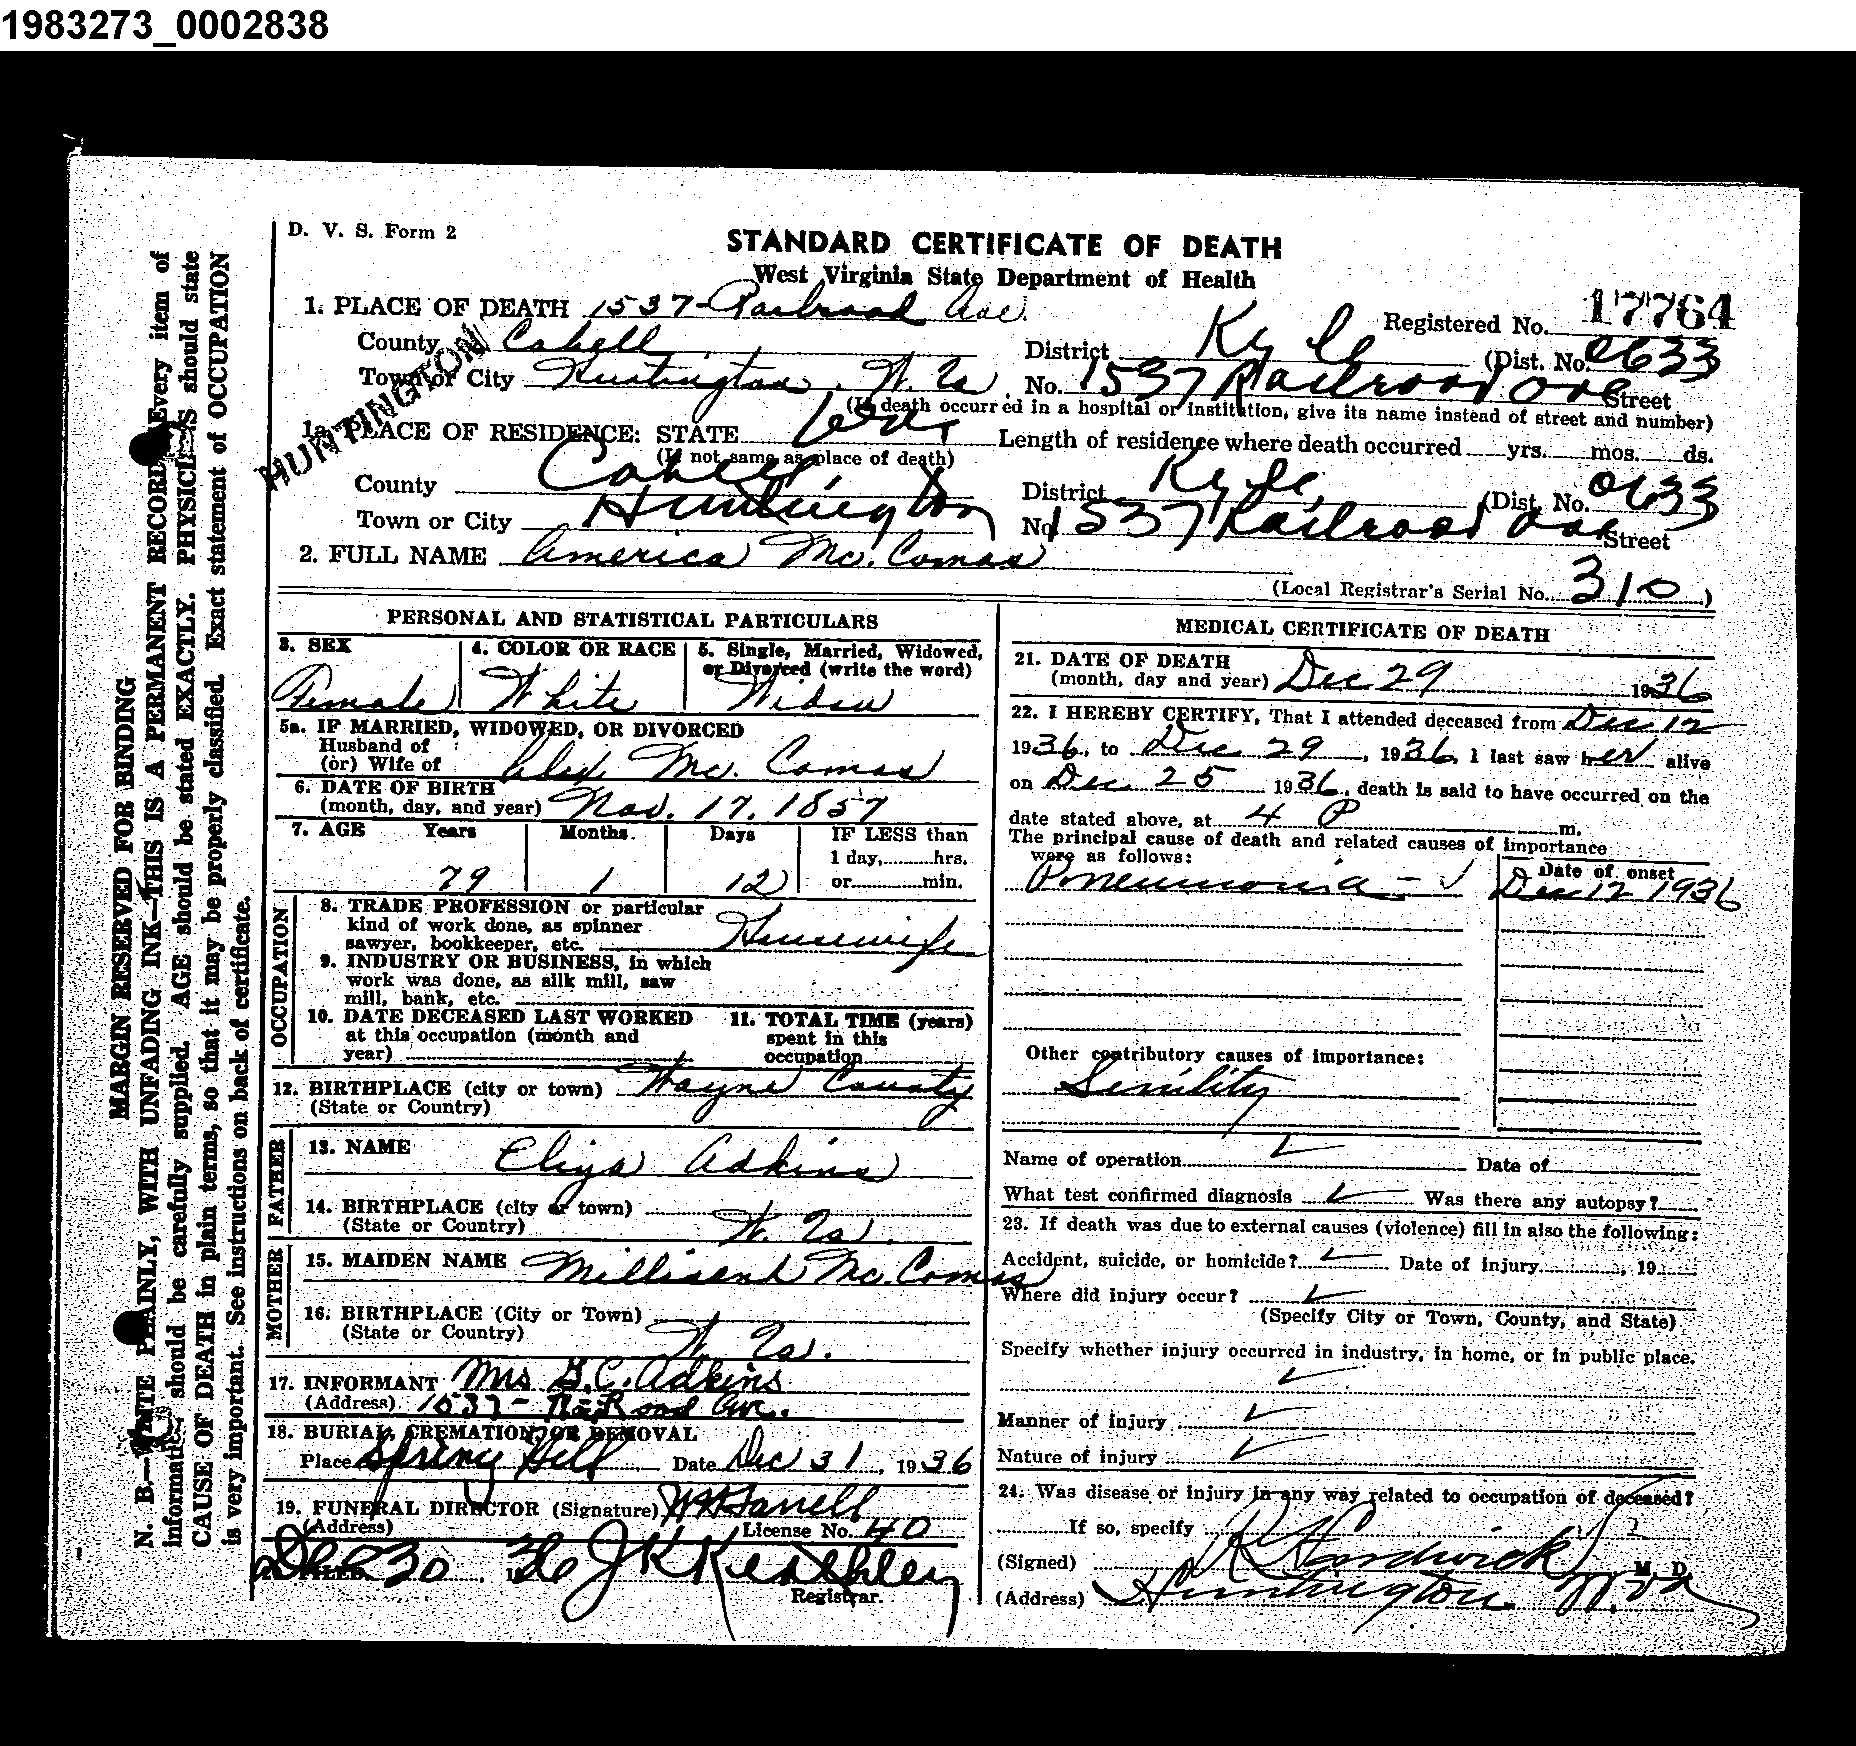 1983273_0002838
D. V. S. Form 2
STANDARD CERTIFICATE OF DEATH
West Virginia State Department of Health
1. PLACE OF DEATH 1537 Railroad Ave.
Registered No. 17764
HUNTINGTON
County Cabell District Kyle (Dist. No. 0633
Town or City Huntington, W. Va. No. 1537 Railroad Ave Street
(If death occurred in a hospital or institution, give its name instead of street and number)
1a. PLACE OF RESIDENCE: STATE Length of residence where death occurred yrs. mos. ds.
(If not same as place of death)
County Cabell District Kyle (Dist. No. 0633
Town or City Huntington No 1537 Railroad Ave Street
2. FULL NAME America Mc. Comas
(Local Registrar's Serial No. 310)
PERSONAL AND STATISTICAL PARTICULARS
3. SEX 4. COLOR OR RACE 5. Single, Married, Widowed, or Divorced (write the word)
Female White Widow
5a. IF MARRIED, WIDOWED, OR DIVORCED
Husband of
(or) Wife of Mc. Comas
6. DATE OF BIRTH
(month, day, and year) Nov. 17. 1857
7. AGE Years Months. Days IF LESS than
1 day, hrs.
79 1 12 or min.
OCCUPATION
8. TRADE PROFESSION or particular
kind of work done, as spinner
sawyer, bookkeeper, etc. Housewife
9. INDUSTRY OR BUSINESS, in which
work was done, as silk mill, saw
mill, bank, etc.
10. DATE DECEASED LAST WORKED
at this occupation (month and
year)
11. TOTAL TIME (years)
spent in this
occupation
12. BIRTHPLACE (city or town) Wayne County
(State or Country)
FATHER
13. NAME Eliza Adkins
14. BIRTHPLACE (city or town)
(State or Country) W. Va.
MOTHER
15. MAIDEN NAME Millisend Mc. Comas
16. BIRTHPLACE (City or Town)
(State or Country) W. Va.
17. INFORMANT Mrs G.C. Adkins
(Address) 1537 - Ave.
18. BURIAL, CREMATION, OR REMOVAL
Place Spring Hill Date Dec 31, 1936
19. FUNERAL DIRECTOR (Signature)
(Address) License No. 40
Dec 30, 1936 J K Keathley
Registrar.
MEDICAL CERTIFICATE OF DEATH
21. DATE OF DEATH
(month, day and year) Dec 29 1936
22. I HEREBY CERTIFY, That I attended deceased from Dec 12
1936, to Dec 29, 1936, I last saw her alive
on Dec 25 1936, death is said to have occurred on the
date stated above, at 4 P m.
The principal cause of death and related causes of importance
were as follows: Date of onset
Pneumonia - Dec 12 1936
Other contributory causes of importance:
Senility
Name of operation Date of
What test confirmed diagnosis Was there any autopsy?
23. If death was due to external causes (violence) fill in also the following:
Accident, suicide, or homicide? Date of injury, 19
Where did injury occur?
(Specify City or Town, County, and State)
Specify whether injury occurred in industry, in home, or in public place.
Manner of injury
Nature of injury
24. Was disease or injury in any way related to occupation of deceased?
If so, specify
(Signed) Hardwick M. D.
(Address) Huntington W. Va
MARGIN RESERVED FOR BINDING
N. B.—WRITE PLAINLY, WITH UNFADING INK—THIS IS A PERMANENT RECORD. Every item of
information should be carefully supplied. AGE should be stated EXACTLY. PHYSICIANS should state
CAUSE OF DEATH in plain terms, so that it may be properly classified. Exact statement of OCCUPATION
is very important. See instructions on back of certificate.